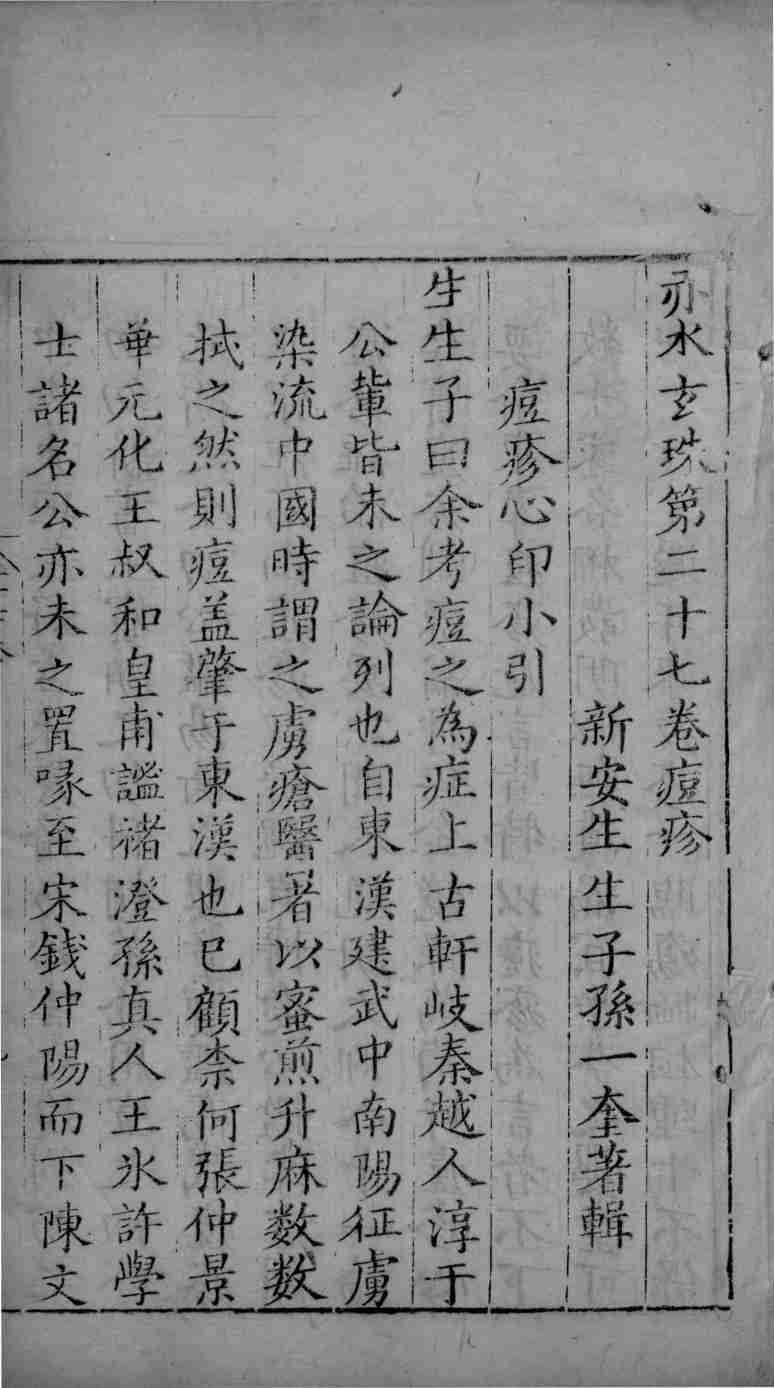 赤水玄珠第二十七卷痘疹
新安生生子孫一奎著輯
痘疹心印小引
生生子曰余考痘之為症上古軒岐秦越人淳于
公輩皆未之論列也自東漢建武中南陽征虜
染流中國時謂之虜瘡醫著以蜜煎升麻数数
拭之然則痘盖肇于東漢也已顧柰何張仲景
華元化王叔和皇甫謐禇澄孫真人王氷許學
士諸名公亦未之置喙至宋錢仲陽而下陳文